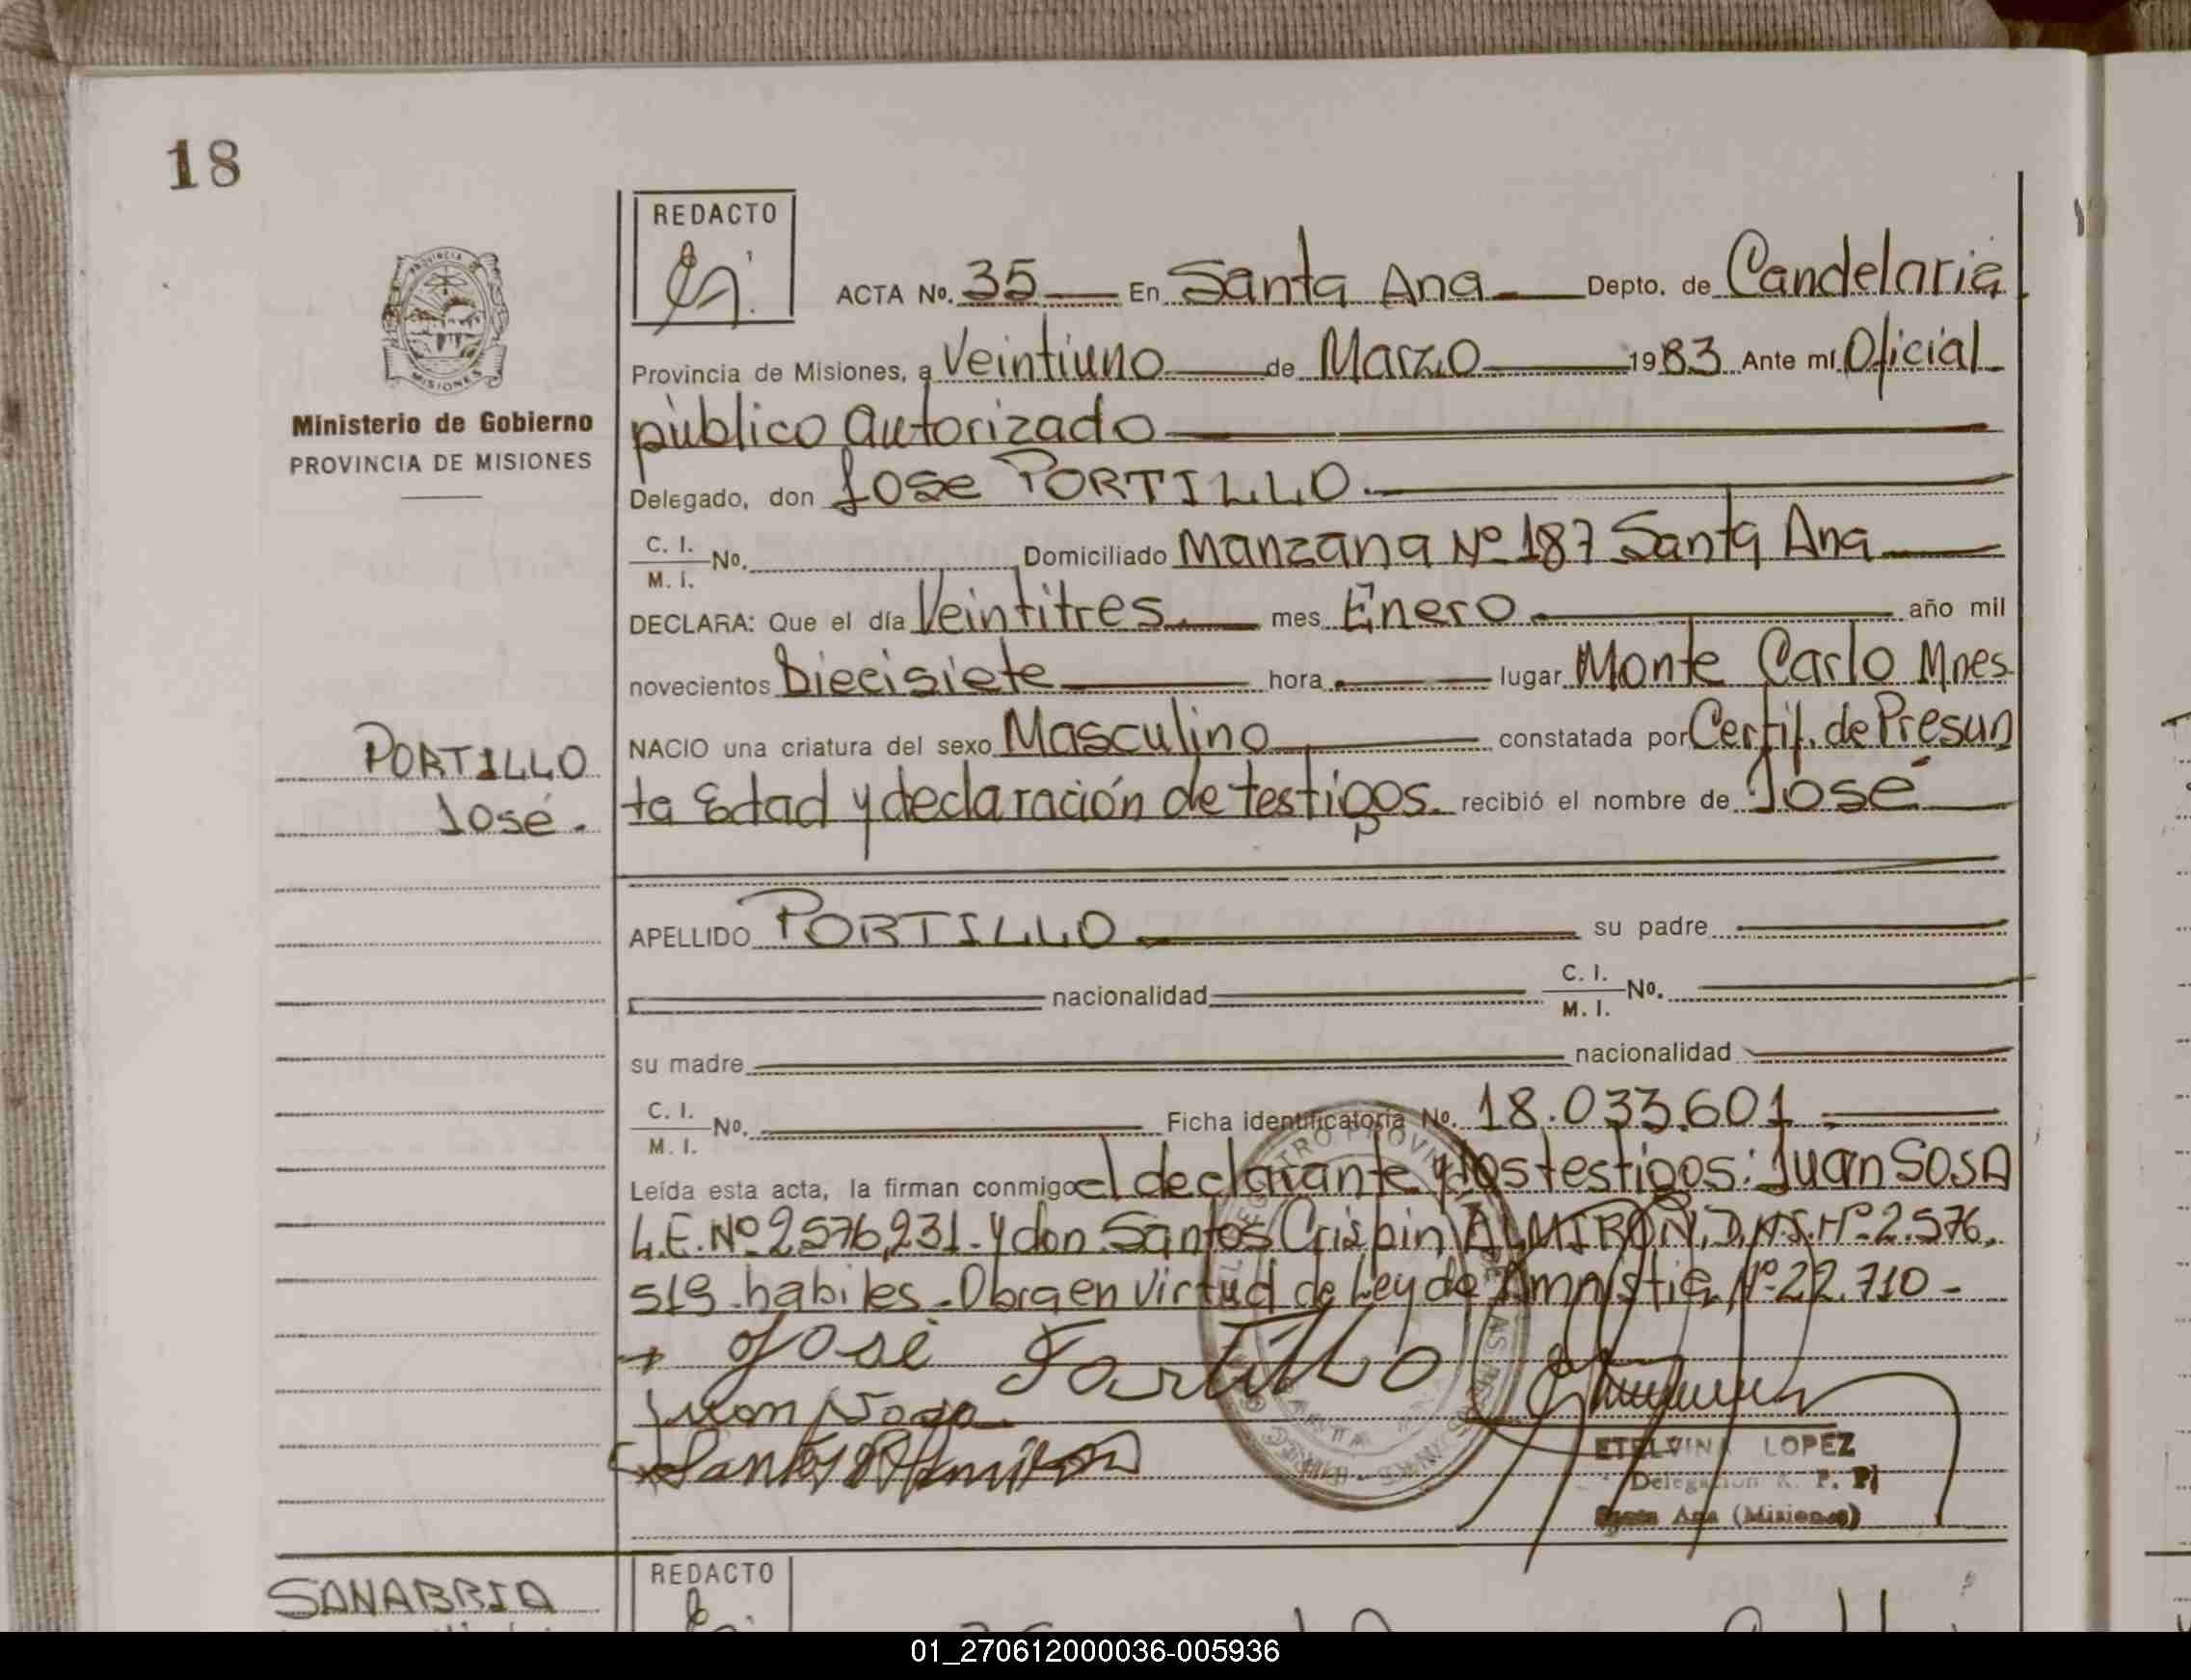 18
PROVINCIA
MISIONES
Ministerio de Gobierno
PROVINCIA DE MISIONES
PORTILLO
José.
REDACTO
ACTA No. 35 En Santa Ana Depto. de Candelaria
Provincia de Misiones, a Veintiuno de Marzo 1983 Ante mí Oficial
público autorizado
Delegado, don Jose PORTILLO.
C. I. / M. I. No. Domiciliado Manzana Nº 187 Santa Ana
DECLARA: Que el día Veintitres mes Enero año mil
novecientos Diecisiete hora lugar Monte Carlo Mnes
NACIO una criatura del sexo Masculino constatada por Certif. de Presun
ta Edad y declaración de testigos. recibió el nombre de José
APELLIDO PORTILLO su padre
nacionalidad C. I. / M. I. No.
su madre nacionalidad
C. I. / M. I. No. Ficha identificatoria No. 18.033.601
Leída esta acta, la firman conmigo el declarante y los testigos: Juan SOSA
L.E. Nº 2576,231 - y don Santos Crispin ALMIRON, D.N.I. Nº 2.576.
519 habiles. Obra en virtud de Ley de Amnistia Nº 22.710 -
José Portillo
Juan Sosa
Santos Almiron
ETELVINA LOPEZ
Delegación R. P. P
Santa Ana (Misiones)
SANABRIA
REDACTO
01_270612000036-005936